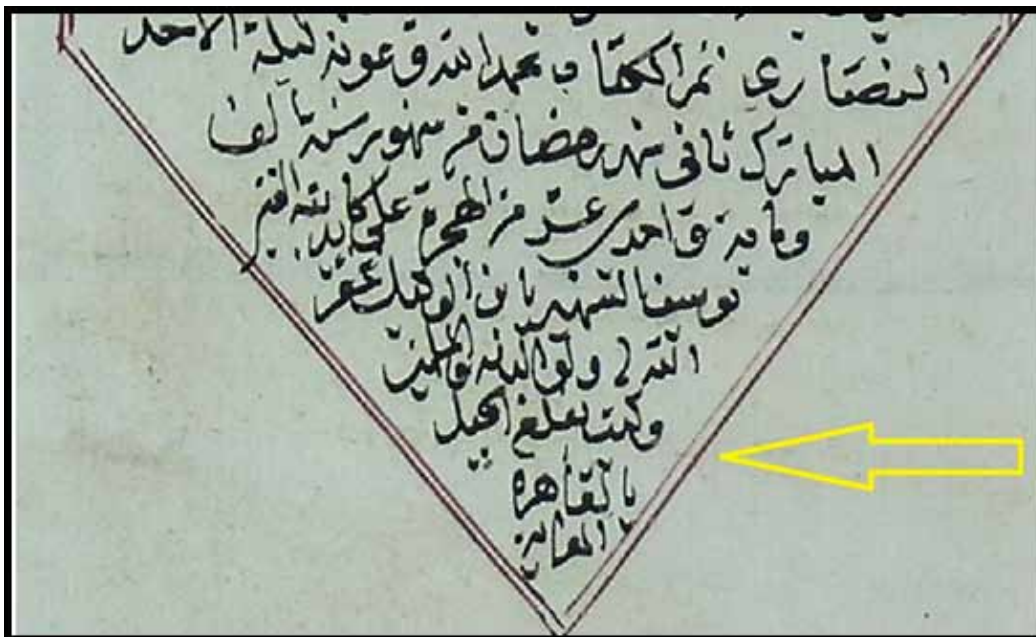 النصاري تم الكتاب بحمد الله وعونه ليلة الاحد
المبارك ثاني شهر رمضان من شهور سنة الف
وماية واحدي عشر من الهجرة علي يد كاتبه الفقير
يوسف الشهير بابن الوكيل غفر
الله له ولوالديه والمسلمين
وكتب بقلعة الجبل
بالقاهرة
المعزية